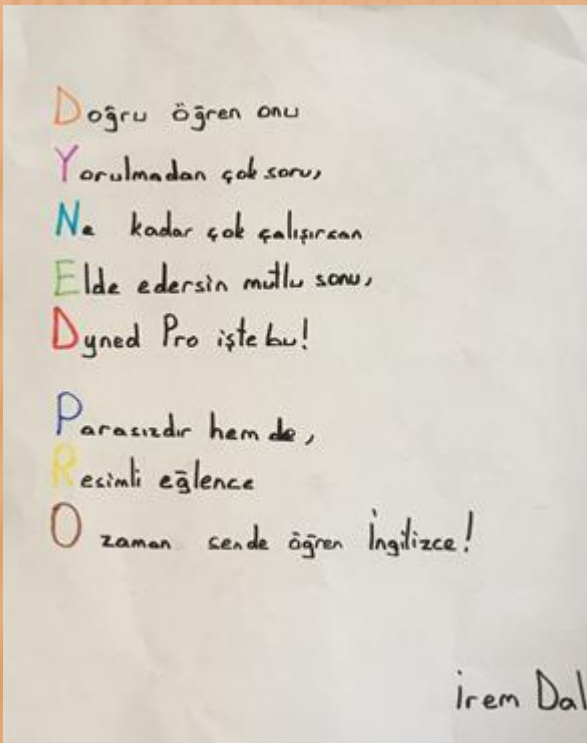 Doğru öğren onu
Yorulmadan çok soru,
Ne kadar çok çalışırsan
Elde edersin mutlu sonu,
Dyned Pro işte bu!
Parasızdır hem de,
Resimli eğlence
O zaman sende öğren İngilizce!
İrem Dal